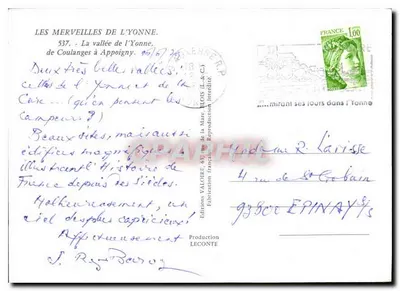 LES MERVEILLES DE L'YONNE.
537. - La vallée de l'Yonne,
de Coulanges à Appoigny.
Deux très belles vallées:
celles de l'Yonne et de la
Cure... (qu'en pensent les
Campeurs?)
Beaux sites, mais aussi
édifices magnifiques
illustrant l'Histoire de
France depuis des Siècles.
Malheureusement, un
ciel des plus capricieux!
Affectueusement
Editions VALOIRE, rue de la Mare, BLOIS (L.-&-C.)
Fabrication française - Reproduction interdite.
Production
LECONTE
FRANCE
1,00
...mirant ses tours dans l'Yonne
Madame R. Larisse
4 rue de St Gobain
93800 EPINAY S/S